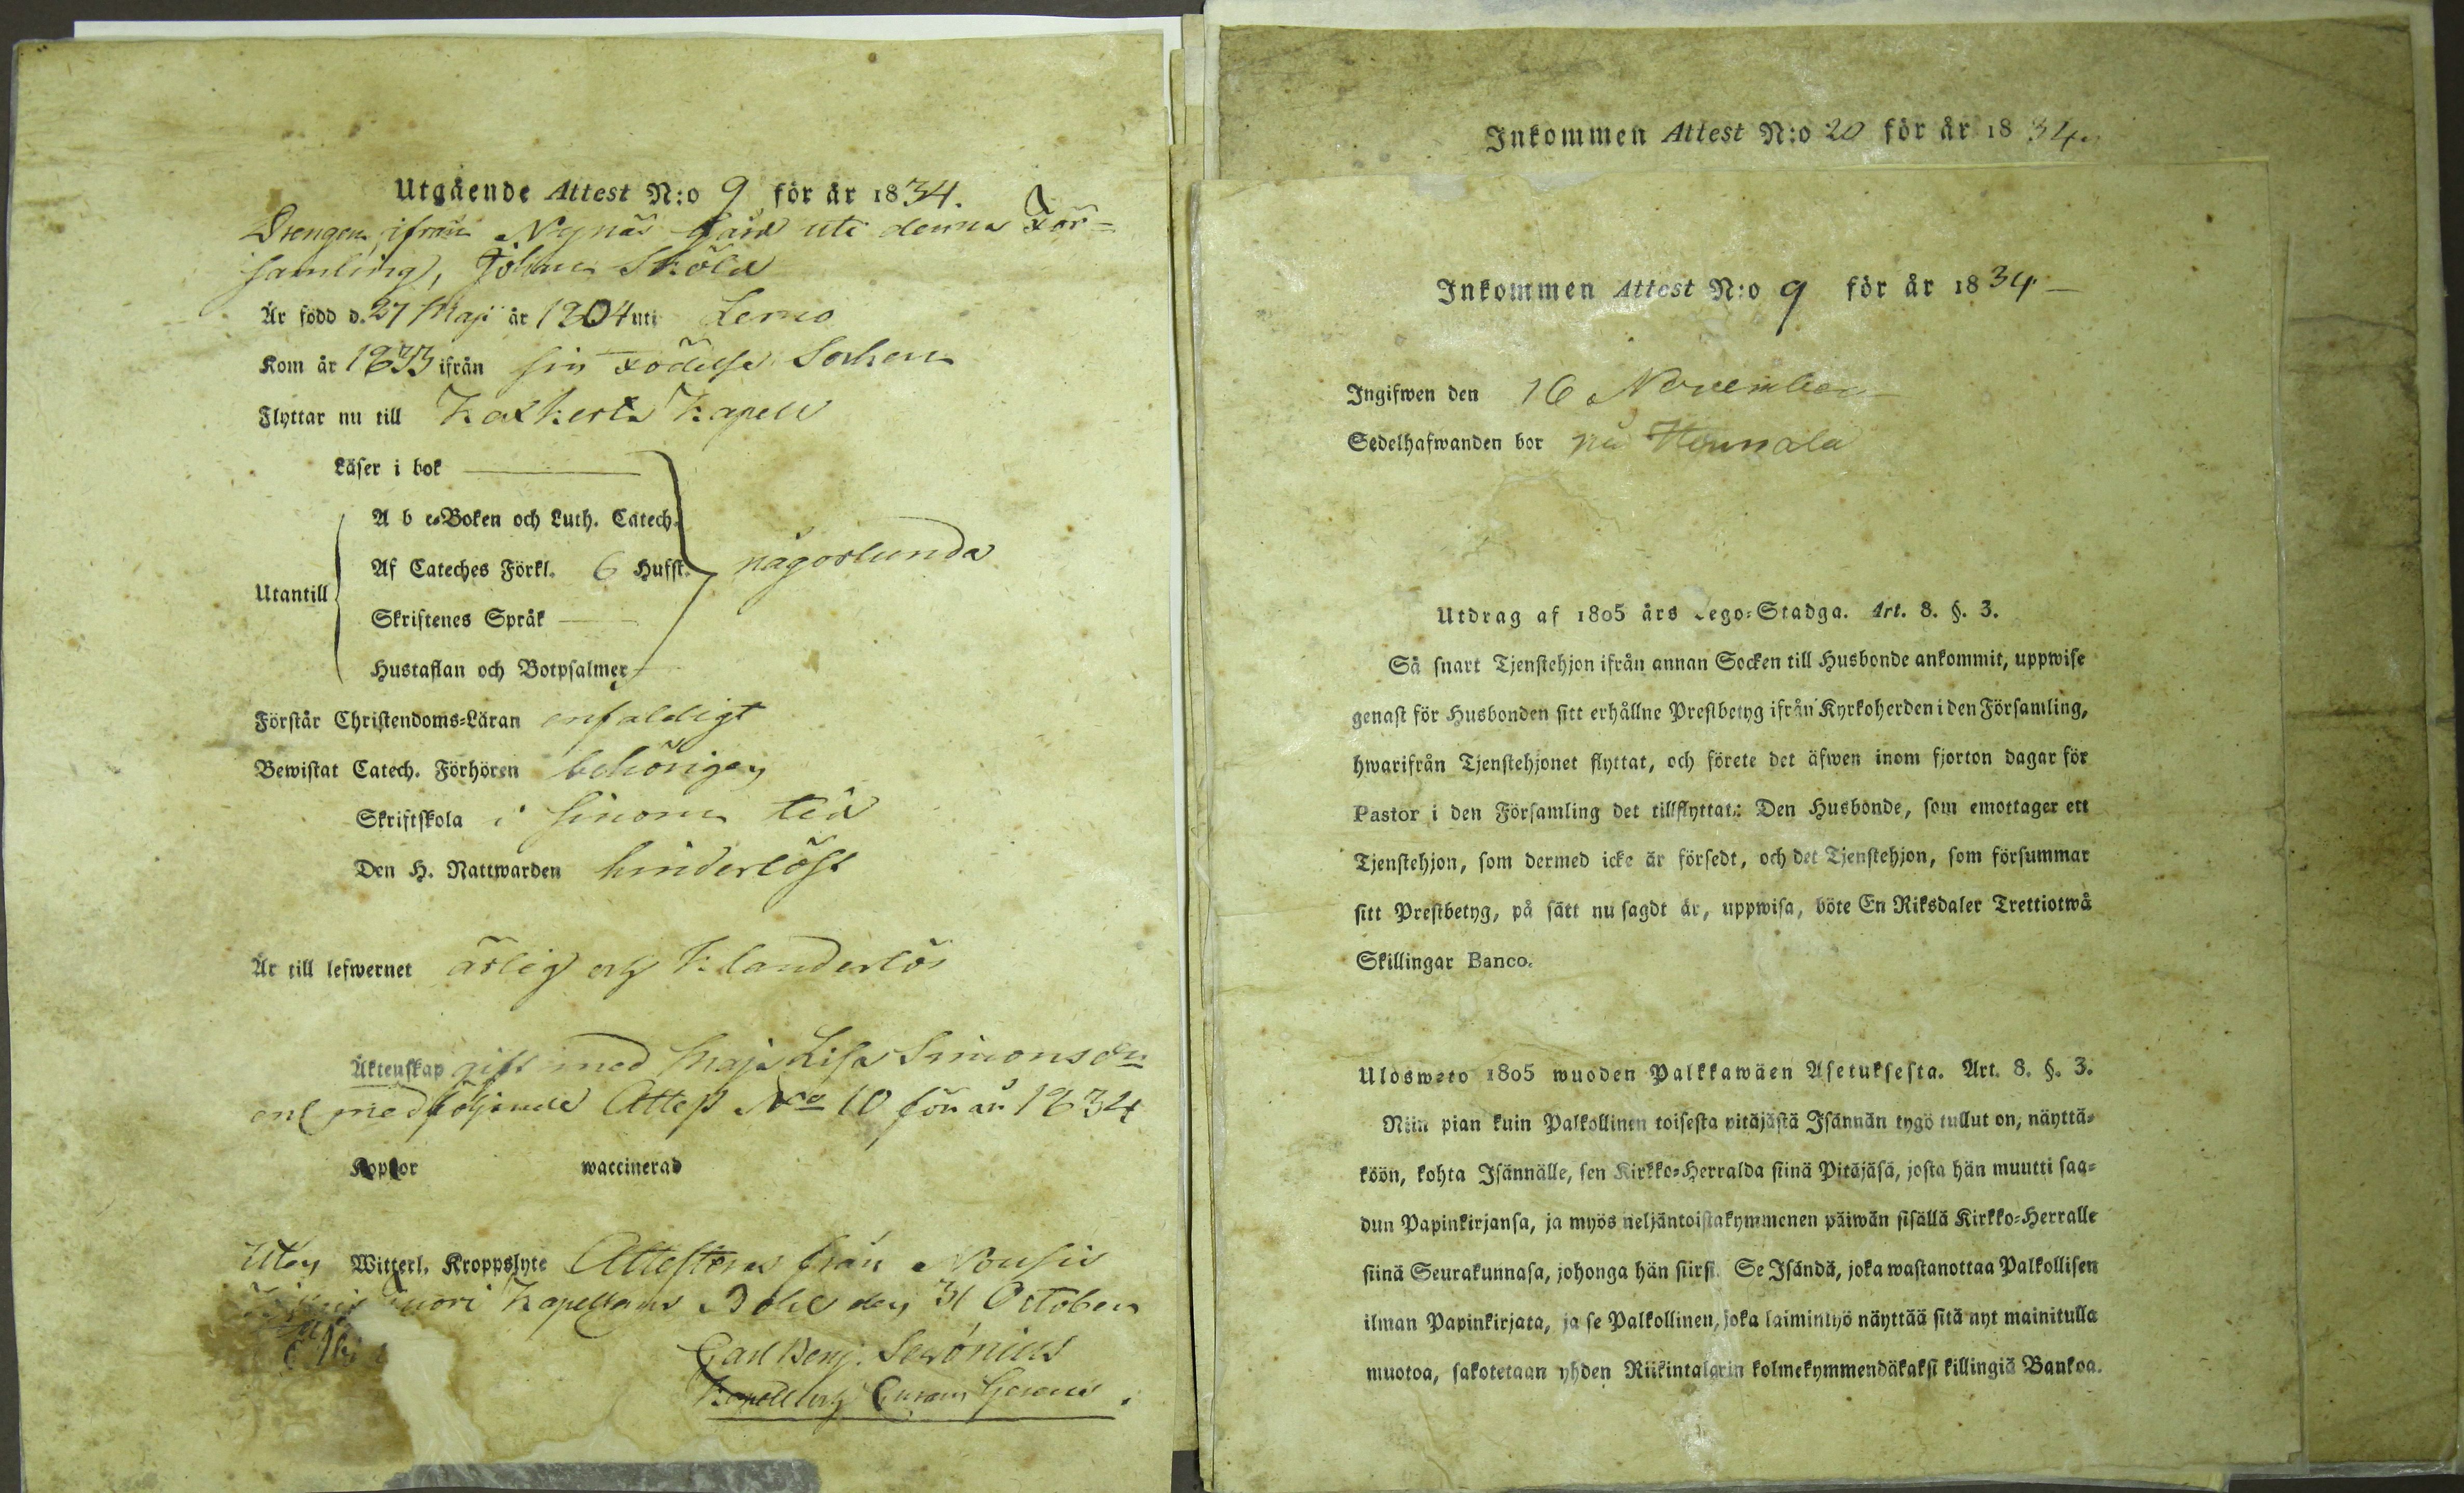 Utgående Attest N:o 9 för år 1834.
Drengen ifrån Nynäs Gård uti denna För=
samling, Johan Sköld
Är född d. 27 Maji år 1804 uti Lemo
Kom år 1833 ifrån sin Födelse Socken
Flyttar nu till Kakkerta Kapell
Läser i bok
A b c=Boken och Luth. Catech.
Af Cateches Förkl. 6 Hufst. någorlunda
Utantill
Skriftenes Språk
Hustaflan och Botpsalmer
Förstår Christendoms=Läran enfaldigt
Bewistat Catech. Förhören behörigen
Skriftskola i sinom tid
Den H. Nattwarden hinderlöst
Är till lefwernet ärlig och klanderlös
Äktenskap gift med Maja Lisa Simonsdr
enl medföljande Attest No 10 för år 1834
Koppor waccinerad
Utan Witterl. Kroppslyte Attesteras från Nousis
Kapellans Bohl den 31 October
Carl Benj.
Inkommen Attest N:o 20 för år 1834.
Inkommen Attest N:o 9 för år 1834
Ingifwen den 16 November
Sedelhafwanden bor på
Utdrag af 1805 års Lego=Stadga. Art. 8. §. 3.
Så snart Tjenstehjon ifrån annan Socken till Husbonde ankommit, uppwise
genast för Husbonden sitt erhållne Prestbetyg ifrån Kyrkoherden i den Församling,
hwarifrån Tjenstehjonet flyttat, och förete det äfwen inom fjorton dagar för
Pastor i den Församling det tillflyttat: Den Husbonde, som emottager ett
Tjenstehjon, som dermed icke är försedt, och det Tjenstehjon, som försummar
sitt Prestbetyg, på sätt nu sagdt är, uppwisa, böte En Riksdaler Trettiotwå
Skillingar Banco.
Ulosweto 1805 wuoden Palkkawäen Asetuksesta. Art. 8. §. 3.
Niin pian kuin Palkollinen toisesta pitäjästä Isännän tygö tullut on, näyttä=
köön, kohta Isännälle, sen Kirkko=Herralda siinä Pitäjäsä, josta hän muutti saa=
dun Papinkirjansa, ja myös neljäntoistakymmenen päiwän sisällä Kirkko=Herralle
siinä Seurakunnasa, johonga hän siirsi. Se Isändä, joka wastanottaa Palkollisen
ilman Papinkirjata, ja se Palkollinen, joka laiminlyö näyttää sitä nyt mainitulla
muotoa, sakotetaan yhden Riikintalarin kolmekymmendäkaksi killingiä Bankoa.